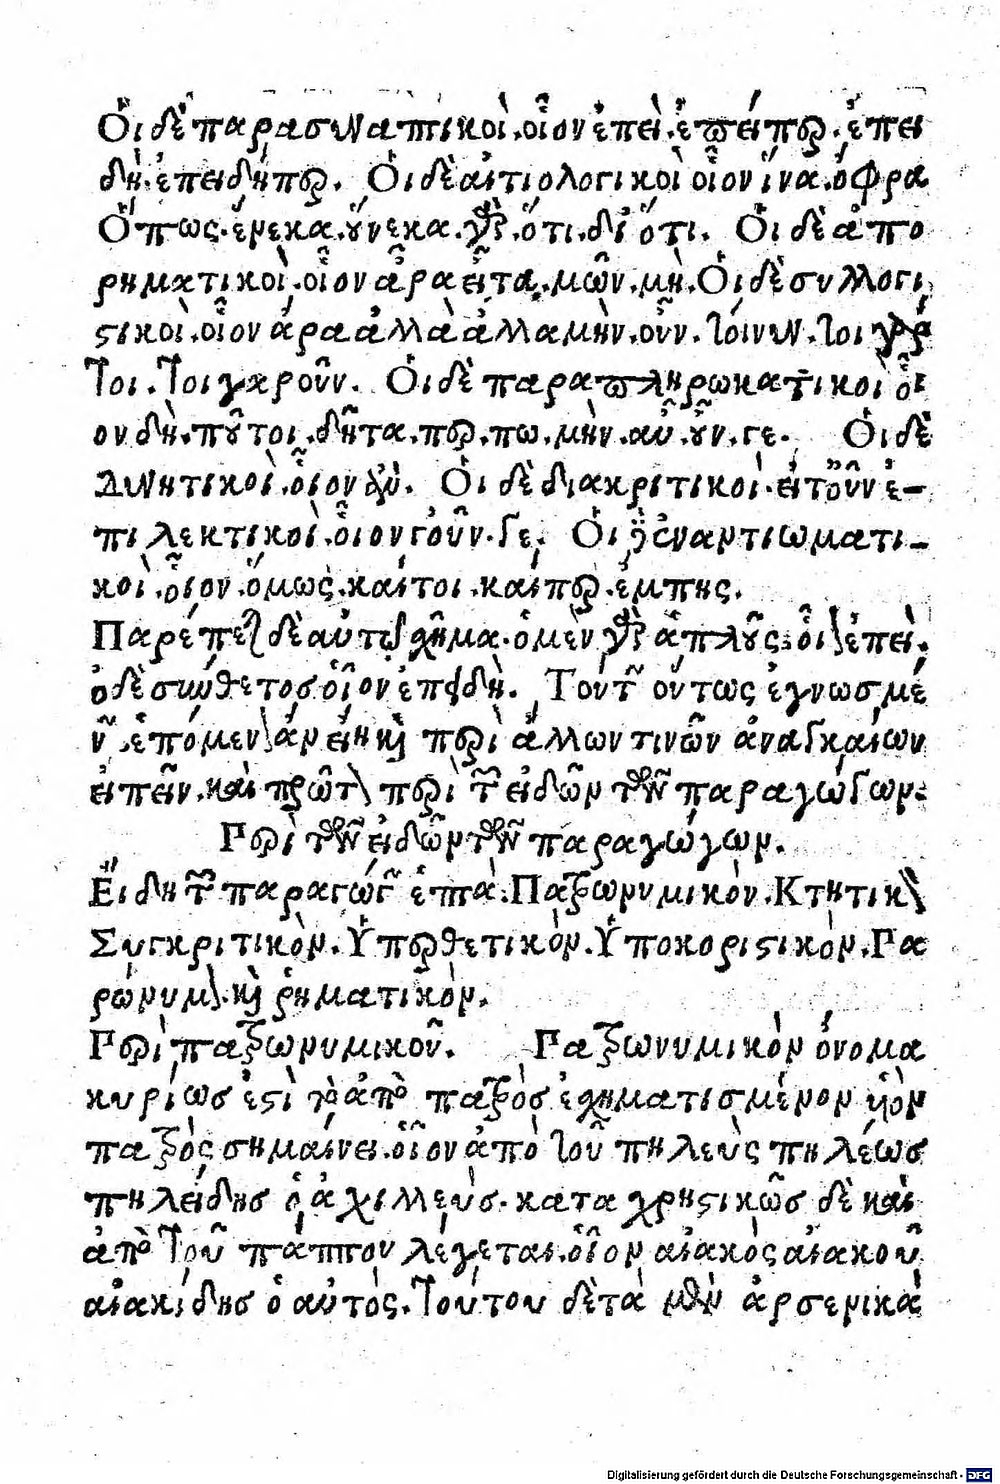 Οἱ δὲ παρασυναπτικοὶ. οἷον ἐπεὶ. ἐπείπερ. ἐπει
δὴ. ἐπειδήπερ. Οἱ δὲ αἰτιολογικοὶ οἷον ἵνα. ὄφρα
Ὅπως. ἕνεκα. οὕνεκα. γὰρ. ὅτι. δι' ὅτι. Οἱ δὲ ἀπο
ρηματικοὶ. οἷον ἆρα εἶτα. μῶν. μὴ. Οἱ δὲ συλλογι
ςικοὶ. οἷον ἄρα ἀλλὰ ἀλλαμὴν. οὖν. τοίνυν. τοι γὰρ
τοι. τοιγαροῦν. Οἱ δὲ παραπληρωματικοὶ οἷ
ον δὴ. που τοι. δῆτα. περ. πω. μὴν. αὖ. οὖν. γε. Οἱ δὲ
Δυνητικοὶ. οἷον ἂν. Οἱ δὲ διακριτικοὶ. εἴτουν ἐ-
πιλεκτικοὶ. οἷον γοῦν. γε. Οἱ δὲ ἐναντιωματι-
κοὶ. οἷον. ὅμως. καίτοι. καίπερ. ἔμπης.
Παρέπεται δὲ αὐτῷ σχῆμα. ὁ μὲν γὰρ ἁπλοῦς. οἷον ἐπεὶ.
ὁ δὲ σύνθετος οἷον ἐπειδὴ. Τούτων οὕτως ἐγνωσμέ
νων. ἑπόμενον ἂν εἴη καὶ περὶ ἄλλων τινῶν ἀναγκαίων
εἰπεῖν. καὶ πρῶτον περὶ τῶν εἰδῶν τῶν παραγώγων:
Περὶ τῶν εἰδῶν τῶν παραγώγων.
Εἴδη τῶν παραγώγων ἑπτὰ. Πατρωνυμικὸν. Κτητικὸν
Συγκριτικὸν. Ὑπερθετικὸν. Ὑποκοριςικὸν. Πα
ρώνυμον. καὶ ῥηματικὸν.
Περὶ πατρωνυμικοῦ. Πατρωνυμικὸν ὄνομα
κυρίως ἐςὶ τὸ ἀπὸ πατρὸς ἐσχηματισμένον υἱὸν
πατρὸς σημαίνει. οἷον ἀπὸ τοῦ πηλεὺς πηλέως
πηλείδης ὁ ἀχιλλεύς. καταχρηςικῶς δὲ καὶ
ἀπὸ τοῦ πάππου λέγεται. οἷον αἰακὸς αἰακοῦ
αἰακίδης ὁ αὐτὸς. Τούτου δὲ τὰ μὲν ἀρσενικὰ
Digitalisierung gefördert durch die Deutsche Forschungsgemeinschaft - DFG